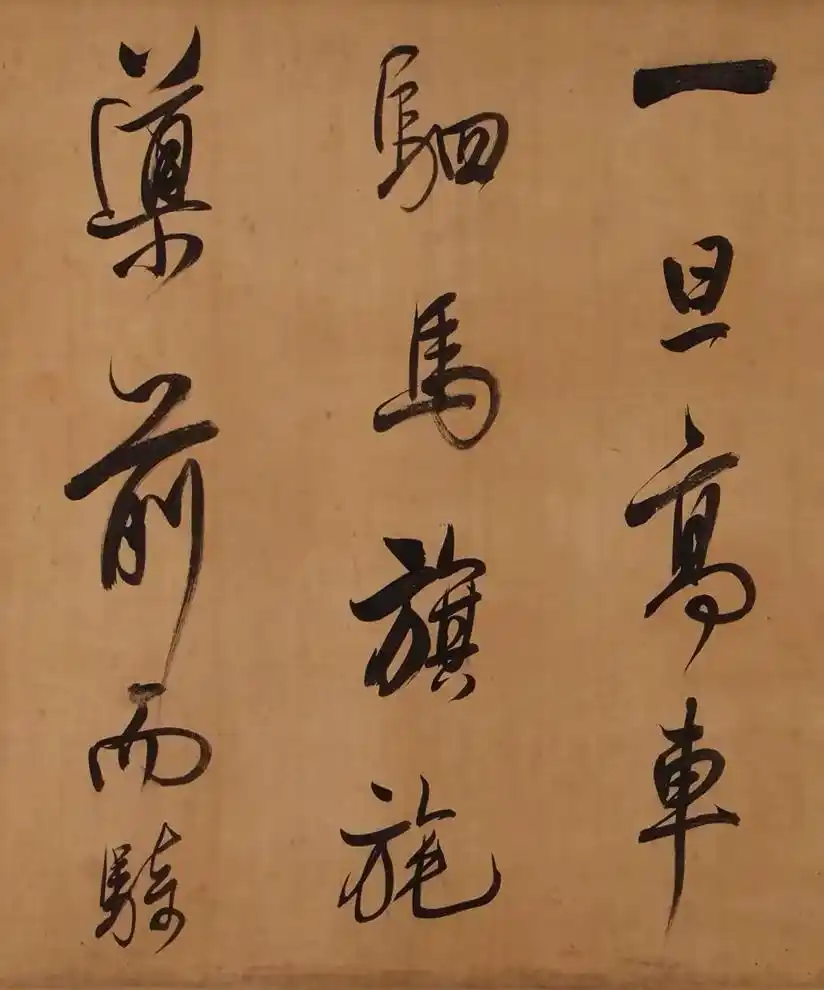 一旦高車
駟馬旗旄
導前而騎